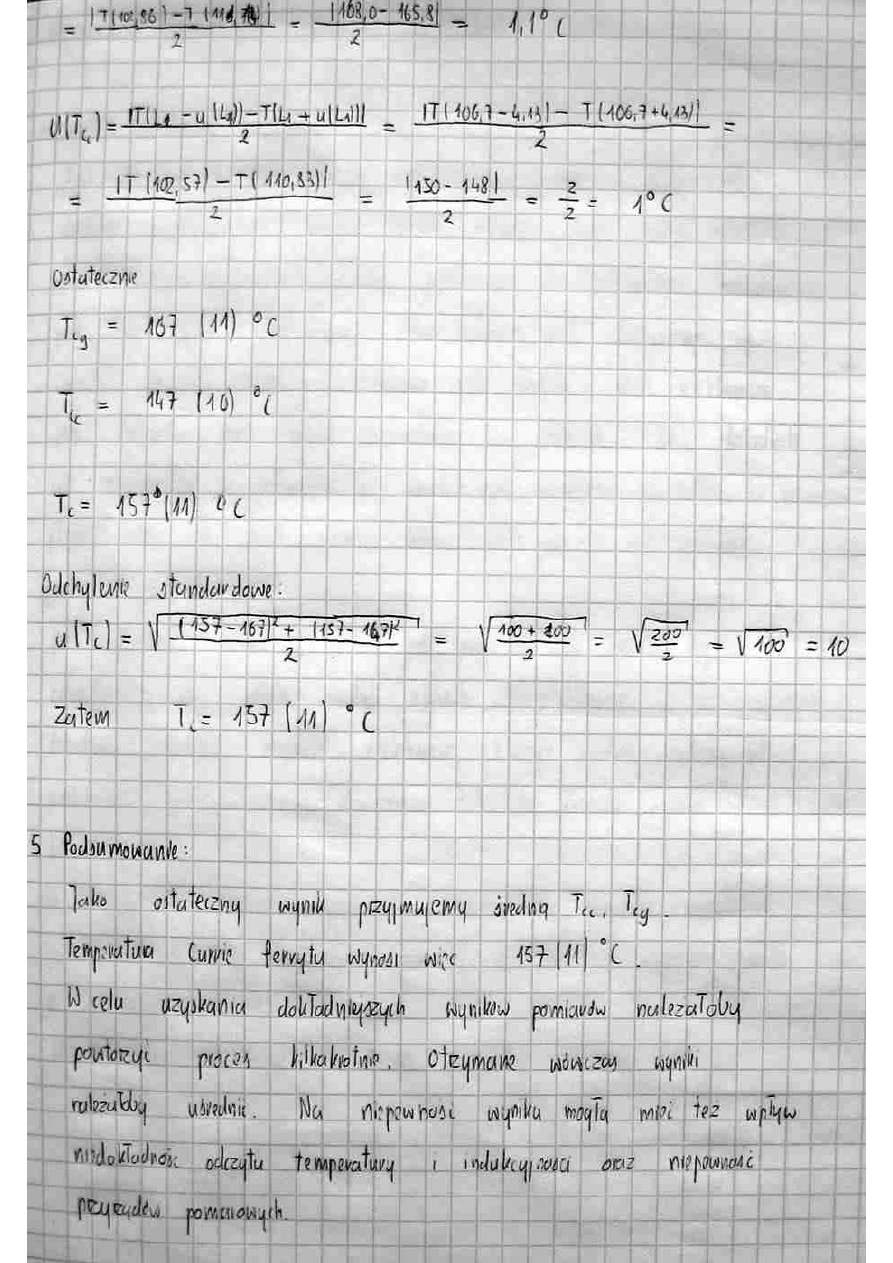 = |T(102,86) - T(111,)| / 2 = |168,0 - 165,8| / 2 = 1,1° C
u(T_c) = |T(L_1 - u(L_1)) - T(L_1 + u(L_1))| / 2 = |T(106,7 - 4,13) - T(106,7 + 4,13)| / 2 =
= |T(102,57) - T(110,83)| / 2 = |150 - 148| / 2 = 2/2 = 1° C
Ostatecznie
T_cg = 167 (11) °C
T_cc = 147 (10) °C
T_c = 157 (11) °C
Odchylenie standardowe:
u(T_c) = √((157 - 167)² + (157 - 147)² / 2) = √(100 + 100 / 2) = √(200 / 2) = √100 = 10
Zatem T_c = 157 (11) °C
5 Podsumowanie:
Jako ostateczny wynik przyjmujemy średnią T_cc, T_cg.
Temperatura Curie ferrytu wynosi więc 157 (11) °C.
W celu uzyskania dokładniejszych wyników pomiarów należałoby
powtórzyć proces kilkakrotnie. Otrzymane wówczas wyniki
należałoby uśrednić. Na niepewność wyniku mogła mieć też wpływ
niedokładność odczytu temperatury i indukcyjności oraz niepewność
przyrządów pomiarowych.